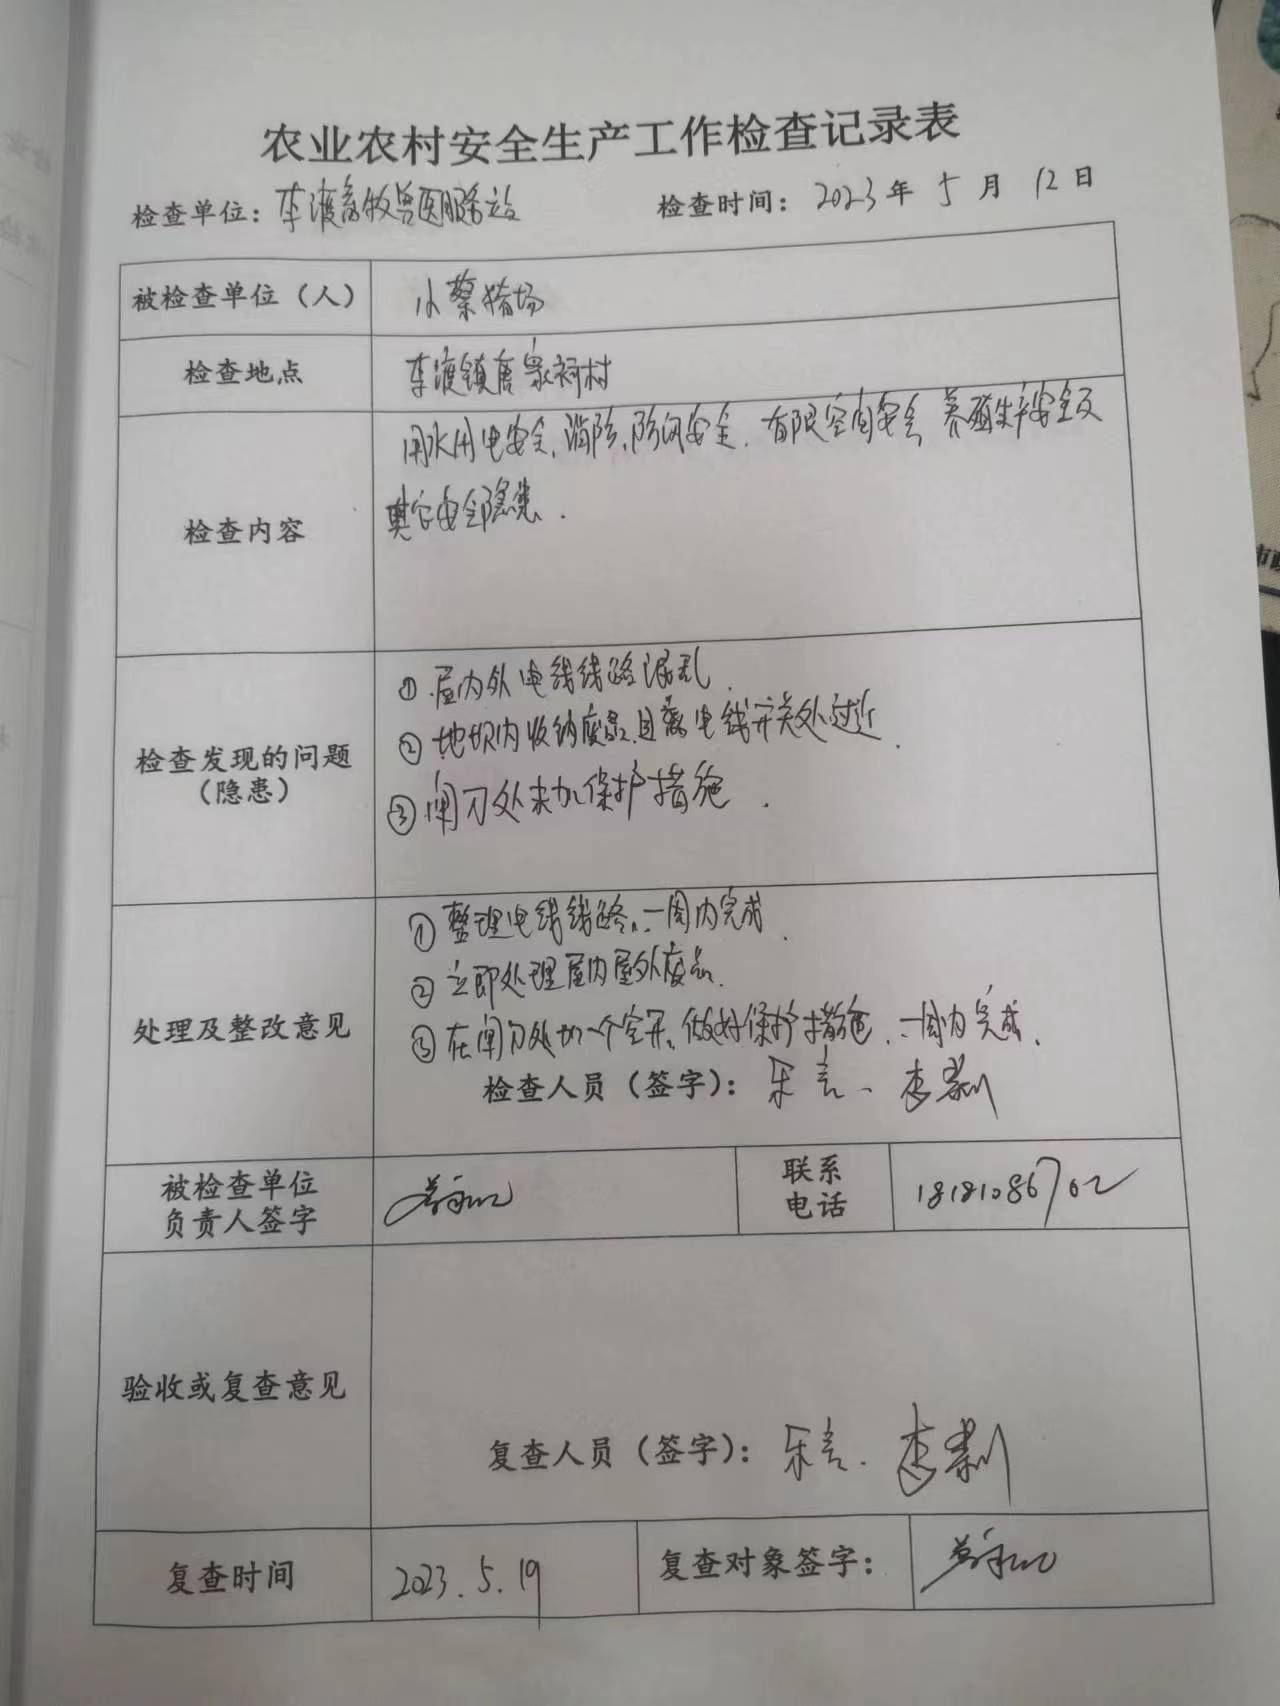 农业农村安全生产工作检查记录表
检查单位：李渡畜牧兽医服务站 检查时间：2023年5月12日
被检查单位（人） 小蔡猪场
检查地点 李渡镇唐家祠村
检查内容 用水用电安全、消防、防汛安全、有限空间安全 养殖生产安全及
其它安全隐患.
检查发现的问题
（隐患）
① 屋内外电线线路混乱.
② 地坝内收纳废品,且离电线开关处过近.
③ 闸刀处未加保护措施.
处理及整改意见
① 整理电线线路,一周内完成.
② 立即处理屋内屋外废品.
③ 在闸刀处加一个空开,做好保护措施,一周内完成.
检查人员（签字）：
被检查单位
负责人签字
联系
电话
18181086702
验收或复查意见
复查人员（签字）：
复查时间 2023.5.19 复查对象签字：